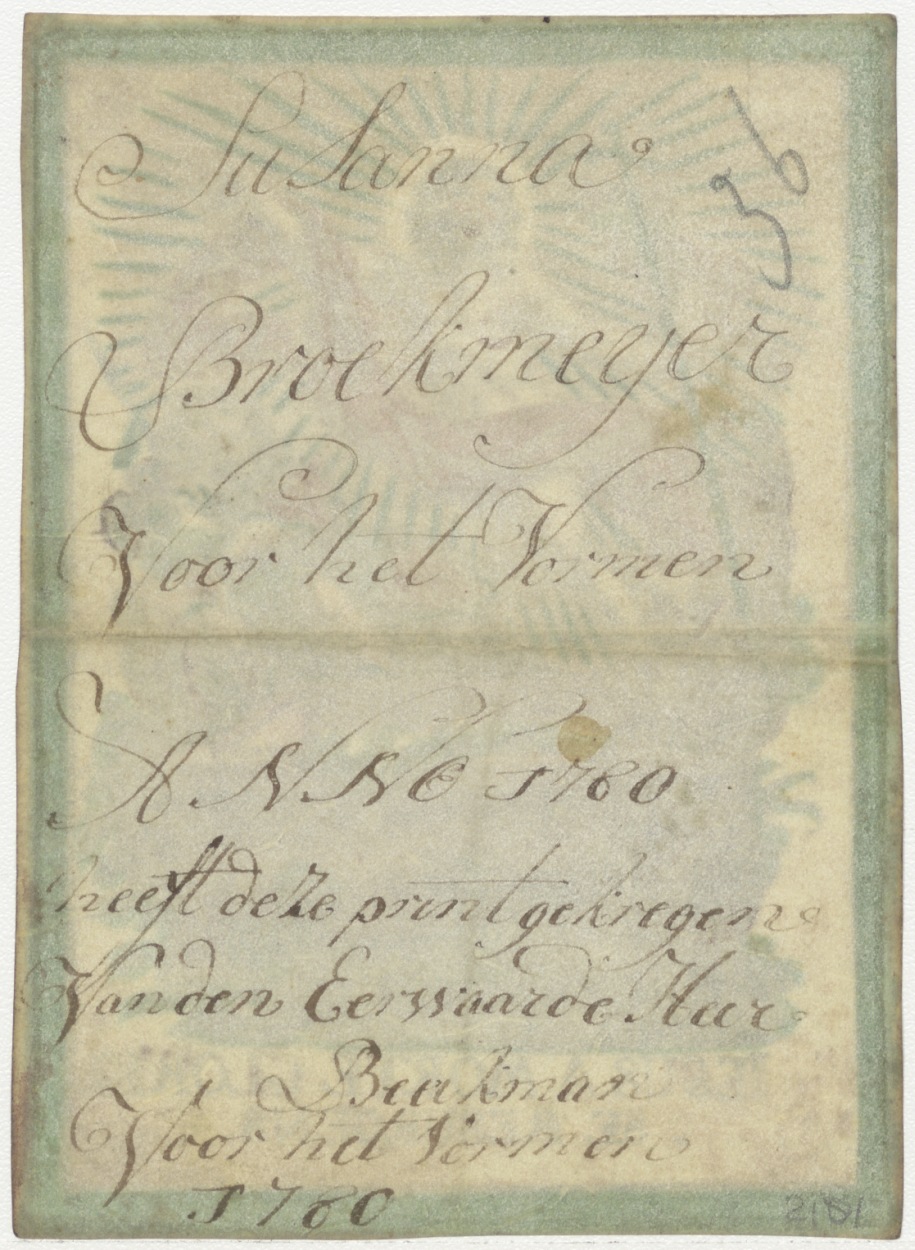 Susanna
36
Broekmeyer
Voor het Vormen
ANNO 1780
heeft deze print gekregen
Van den Eerwaarde Heer
Beekman
Voor het Vormen
1780